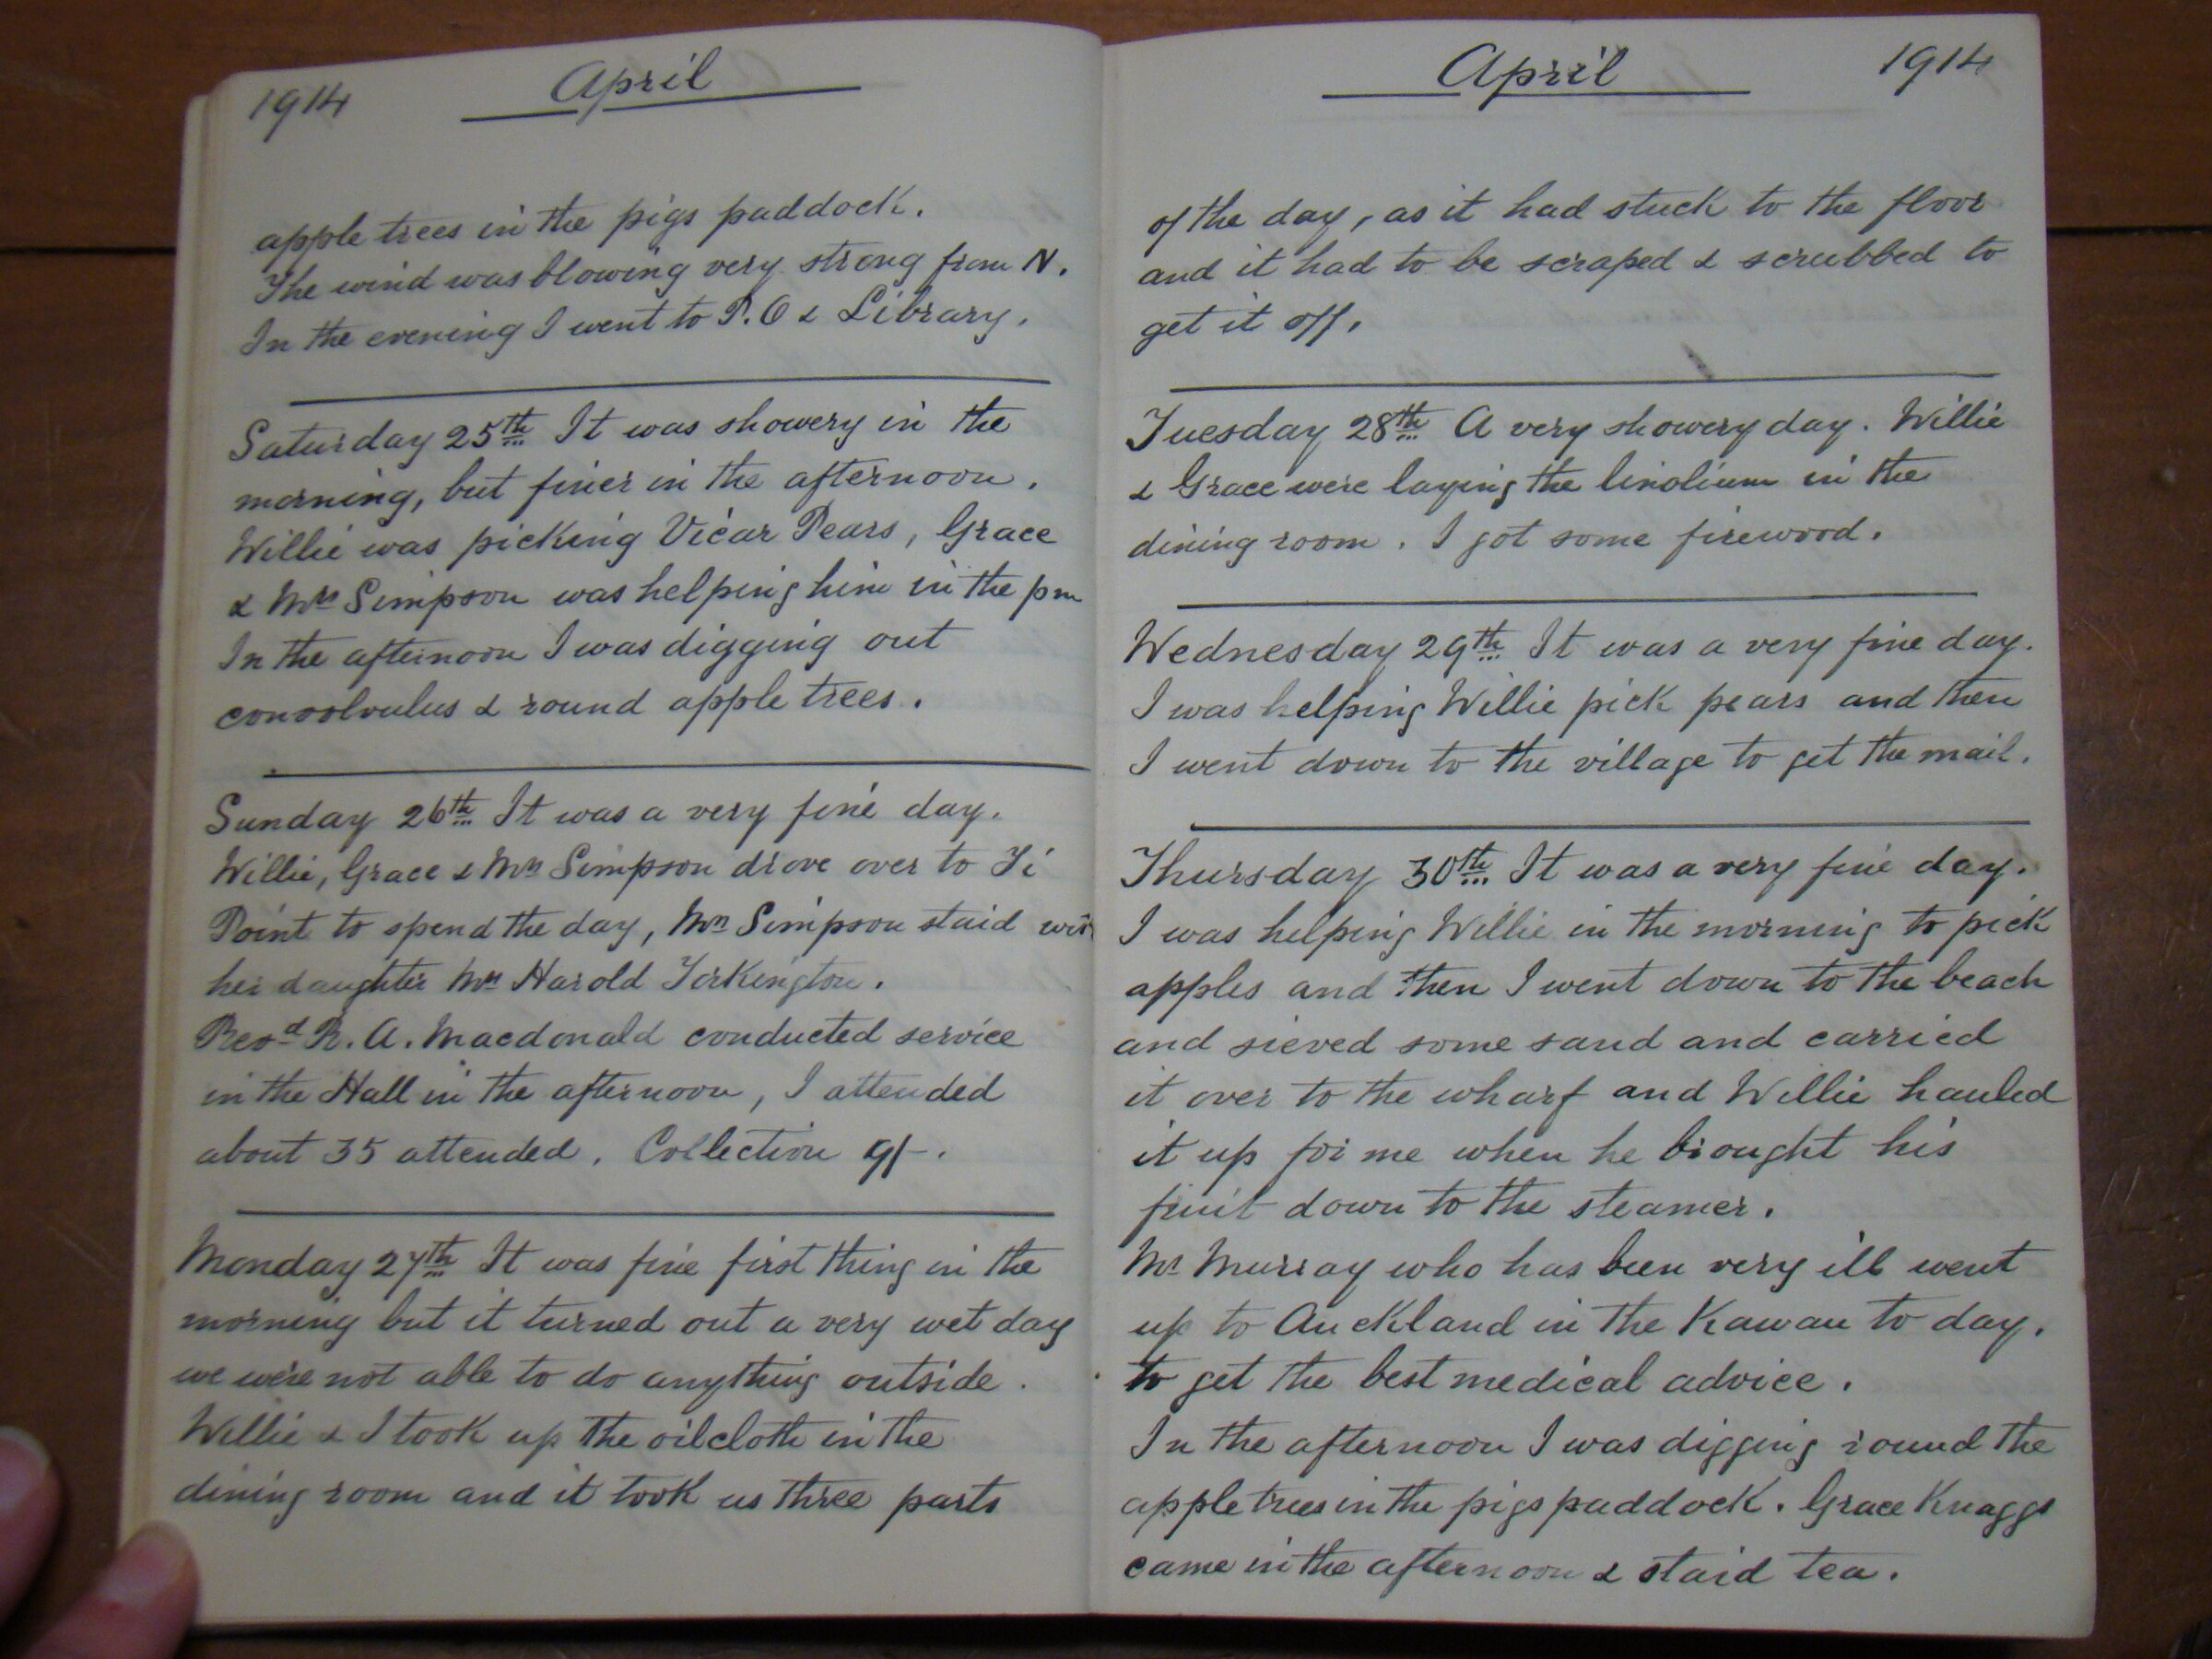 1914 April
apple trees in the pigs paddock.
The wind was blowing very strong from N.
In the evening I went to P.O & Library.
Saturday 25th It was showery in the
morning, but finer in the afternoon.
Willie was picking Vicar Pears, Grace
& Mrs Simpson was helping him in the pm
In the afternoon I was digging out
convolvulus & round apple trees.
Sunday 26th It was a very fine day.
Willie, Grace & Mrs Simpson drove over to Ti
Point to spend the day, Mrs Simpson staid with
her daughter Mrs Harold Torkington.
Revd R. A. Macdonald conducted service
in the Hall in the afternoon, I attended
about 35 attended. Collection 9/-.
Monday 27th It was fine first thing in the
morning but it turned out a very wet day
we were not able to do anything outside.
Willie & I took up the oilcloth in the
dining room and it took us three parts
April 1914
of the day, as it had stuck to the floor
and it had to be scraped & scrubbed to
get it off.
Tuesday 28th A very showery day. Willie
& Grace were laying the linolium in the
dining room. I got some firewood.
Wednesday 29th It was a very fine day.
I was helping Willie pick pears and then
I went down to the village to get the mail.
Thursday 30th It was a very fine day.
I was helping Willie in the morning to pick
apples and then I went down to the beach
and sieved some sand and carried
it over to the wharf and Willie hauled
it up for me when he brought his
fruit down to the steamer.
Mr Murray who has been very ill went
up to Auckland in the Kawau to day.
to get the best medical advice.
In the afternoon I was digging round the
apple trees in the pigs paddock. Grace Knaggs
came in the afternoon & staid tea.